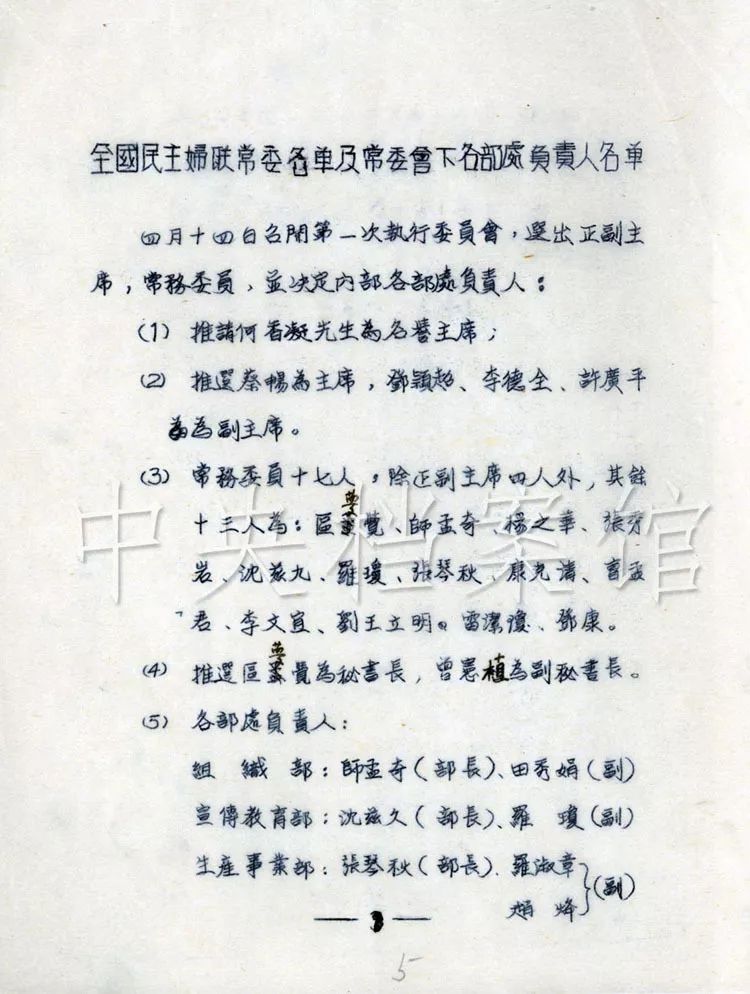 全國民主婦联常委名单及常委會下各部處負責人名单
四月十四日召開第一次執行委員會，選出正副主
席，常務委員，並决定内部各部處負責人：
(1) 推請何香凝先生為名譽主席；
(2) 推選蔡暢為主席，鄧穎超、李德全、許廣平
為副主席。
(3) 常務委員十七人，除正副主席四人外，其餘
十三人為：區夢覺、帥孟奇、楊之華、張秀
岩、沈兹九、羅瓊、張琴秋、康克清、曹孟
君、李文宜、劉王立明、雷潔瓊、鄧康。
(4) 推選區夢覺為秘書長，曾憲植為副秘書長。
(5) 各部處負責人：
組織部：帥孟奇（部長）、田秀娟（副）
宣傳教育部：沈兹久（部長）、羅瓊（副）
生産事業部：張琴秋（部長）、羅淑章
烽（副）
3
5
中央档案馆